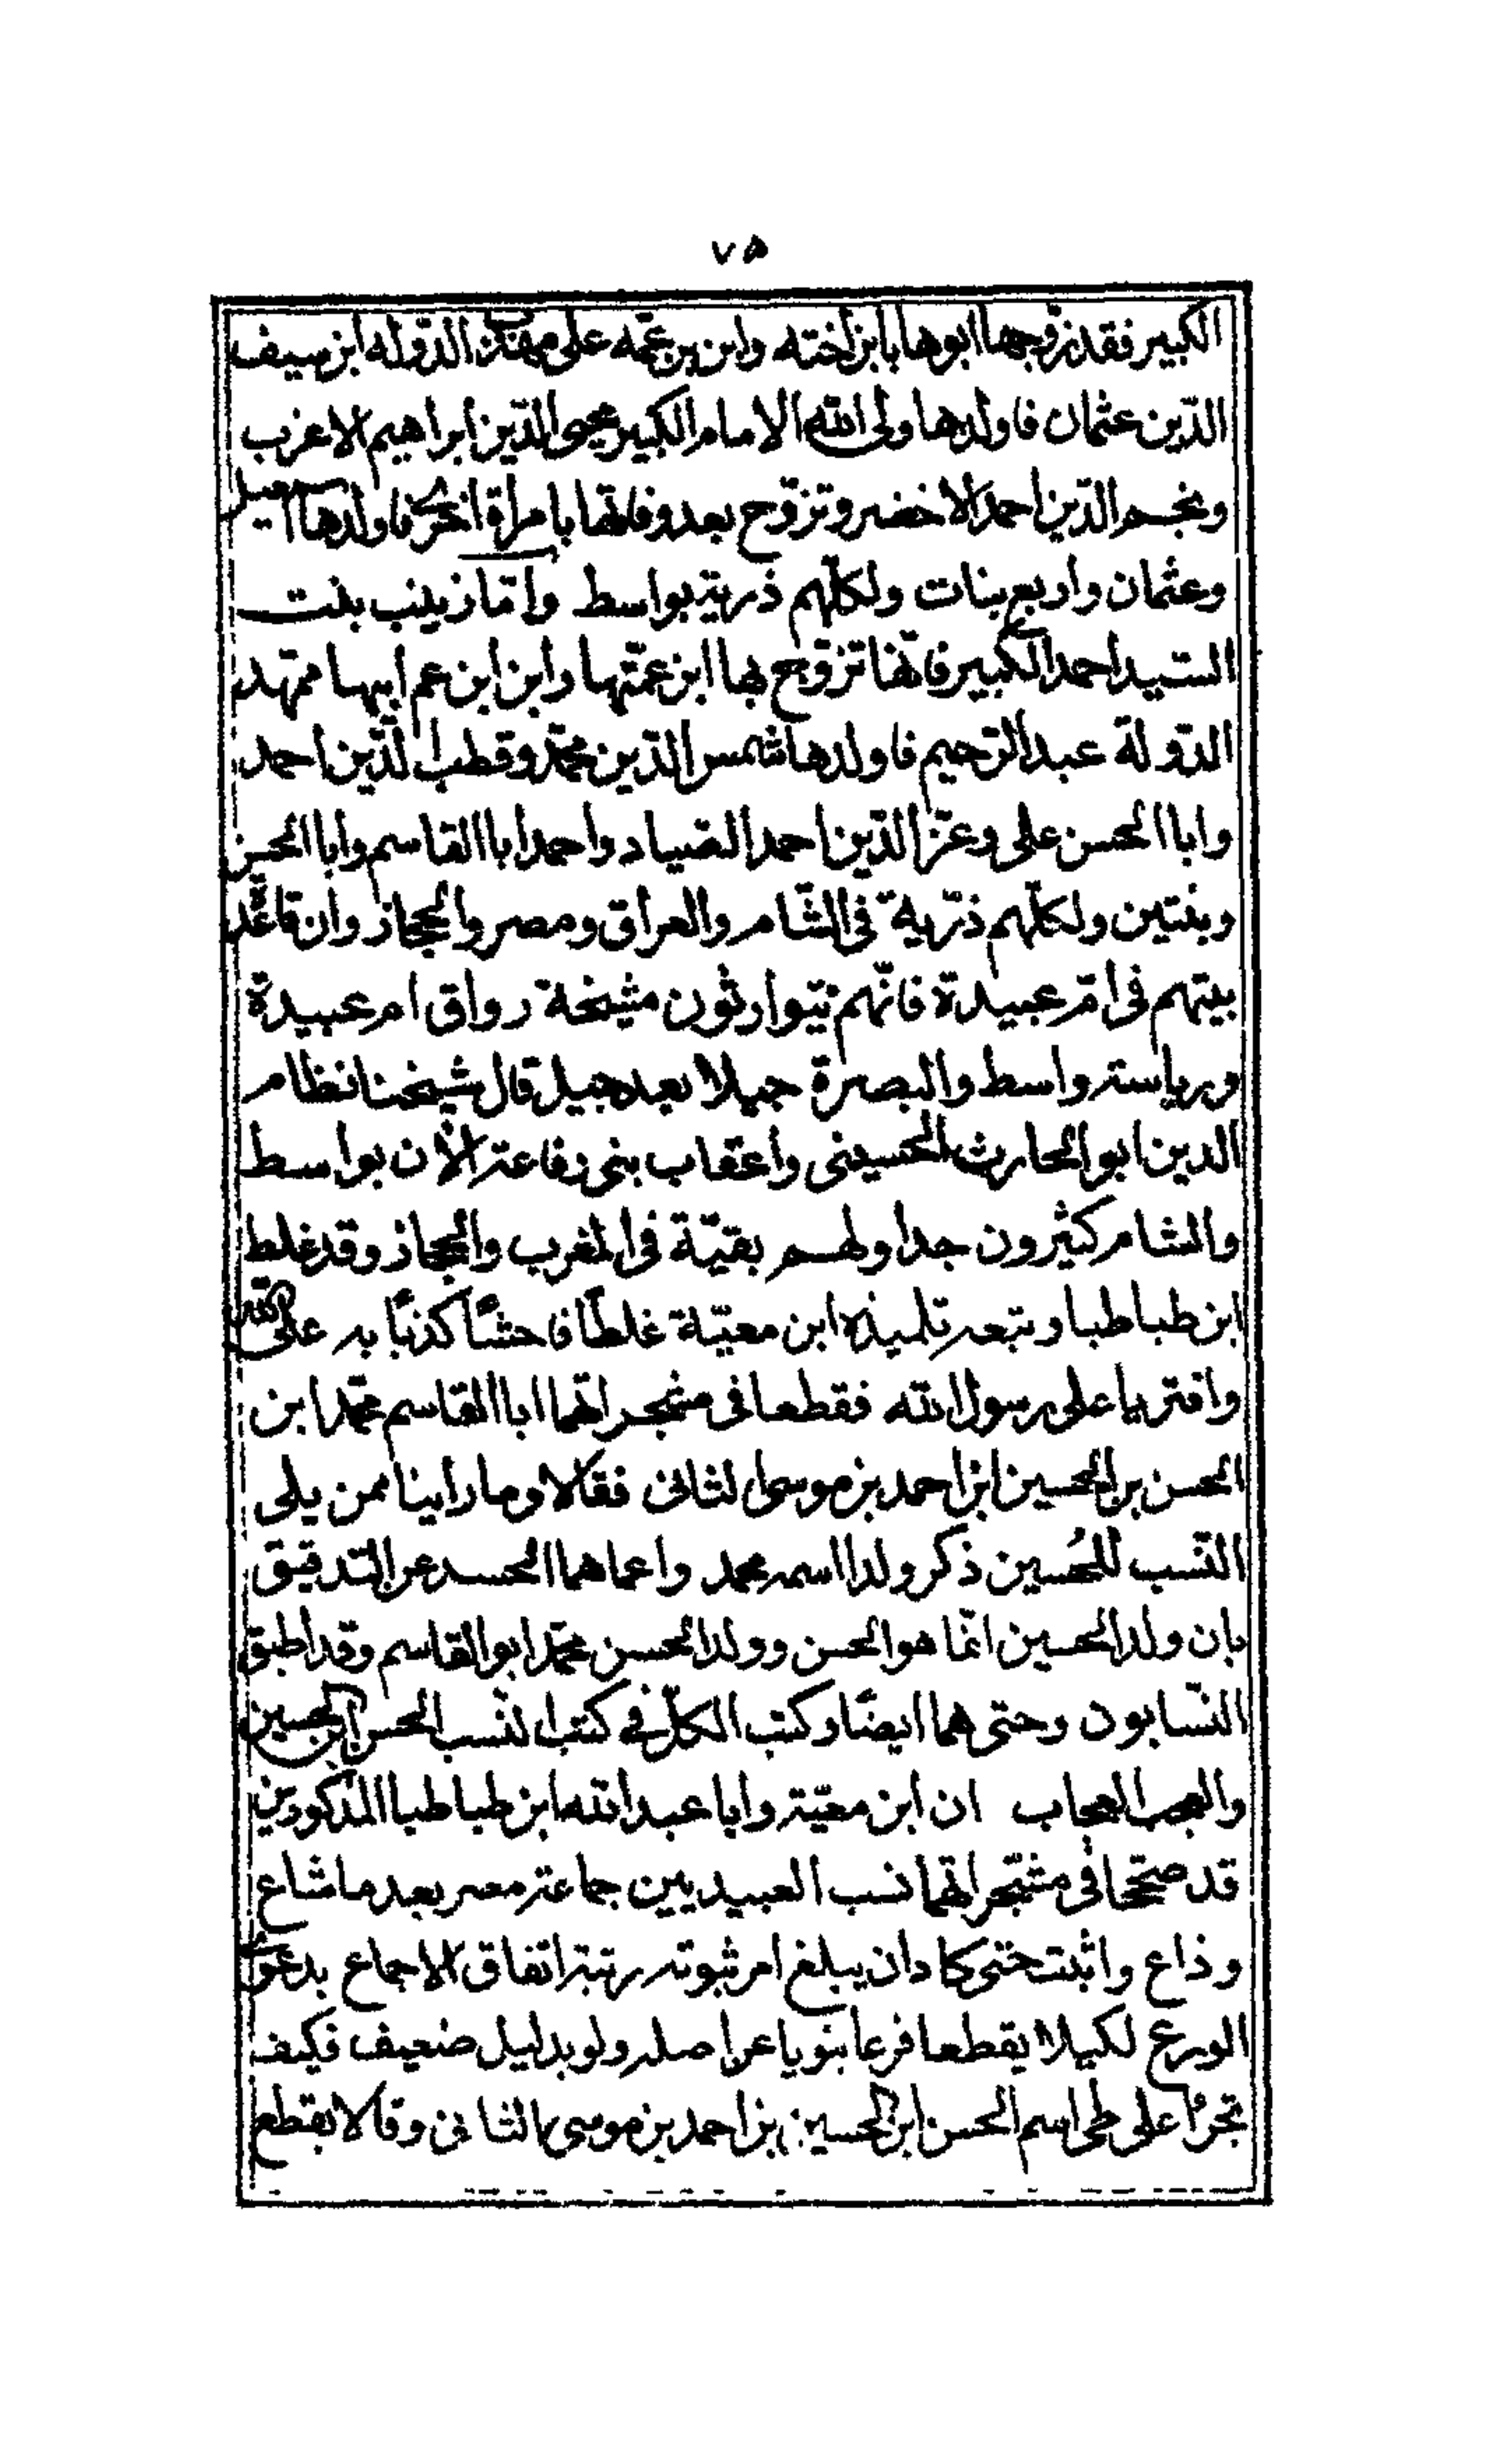 ٧٥
الكبير فقد زوّجها ابوها بابن اخته وابن ابن عمّه على مهذب الدّوله ابن سيف
الدّين عثمان فاولدها ولى الله الامام الكبير محيى الدّين ابراهيم الاعزب
ونجم الدّين احمد الاخضر وتزوّج بعد وفاتها بامرأة اخرى فاولدها اسمعيل
وعثمان واربع بنات ولكلّهم ذرية بواسط وامّا زينب بنت
السّيد احمد الكبير فانّها تزوّج بها ابن عمّتها وابن ابن عم ابيها ممّهد
الدّولة عبد الرّحيم فاولدها شمس الدّين محمّد وقطب الدّين احمد
وابا الحسن على وعزّ الدّين احمد الصّياد واحمد ابا القاسم وابا الحسن
وبنتين ولكلّهم ذرّية فى الشّام والعراق ومصر والحجاز وان قاعدة
بيتهم فى امّ عبيدة فانّهم يتوارثون مشيخة رواق ام عبيدة
ورياسة واسط والبصرة جيلا بعد جيل قال شيخنا نظام
الدين ابو الحارث الحسينى واعقاب بنى رفاعة الآن بواسط
والشام كثيرون جدا ولهم بقيّة فى المغرب والحجاز وقد غلط
ابن طباطبا وتبعه تلميذه ابن معيّة غلطًا فاحشًا كذبًا به على الله
وافتريا على رسول الله فقطعا فى مشجراتهما ابا القاسم محمّد ابن
الحسن بن الحسين ابن احمد بن موسى الثانى فقالا وما راينا ممن يلى
النّسب للحُسين ذكر ولدا اسمه محمد واعماهما الحسد عن التدقيق
بان ولد الحسين انّما هو الحسن وولد الحسن محمّد ابو القاسم وقد اطبق
النّسابون وحتى هما ايضًا وكتب الكلّ فى كتب النّسب الحسن ابن الحسين
والعجب العجاب ان ابن معيّة وابا عبد الله ابن طباطبا المذكورين
قد صحّحا فى مشجّراتهما نسب العبيديين جماعة مصر بعد ما شاع
وذاع واثبت حتى كاد ان يبلغ امر ثبوته رتبة اتفاق الاجماع بدعوى
الورع لكيلا يقطعا فرعا نبويا عن اصله ولو بدليل ضعيف فكيف
تجرّأ على طى اسم الحسن ابن الحسين بن احمد بن موسى الثانى وقالا بقطع